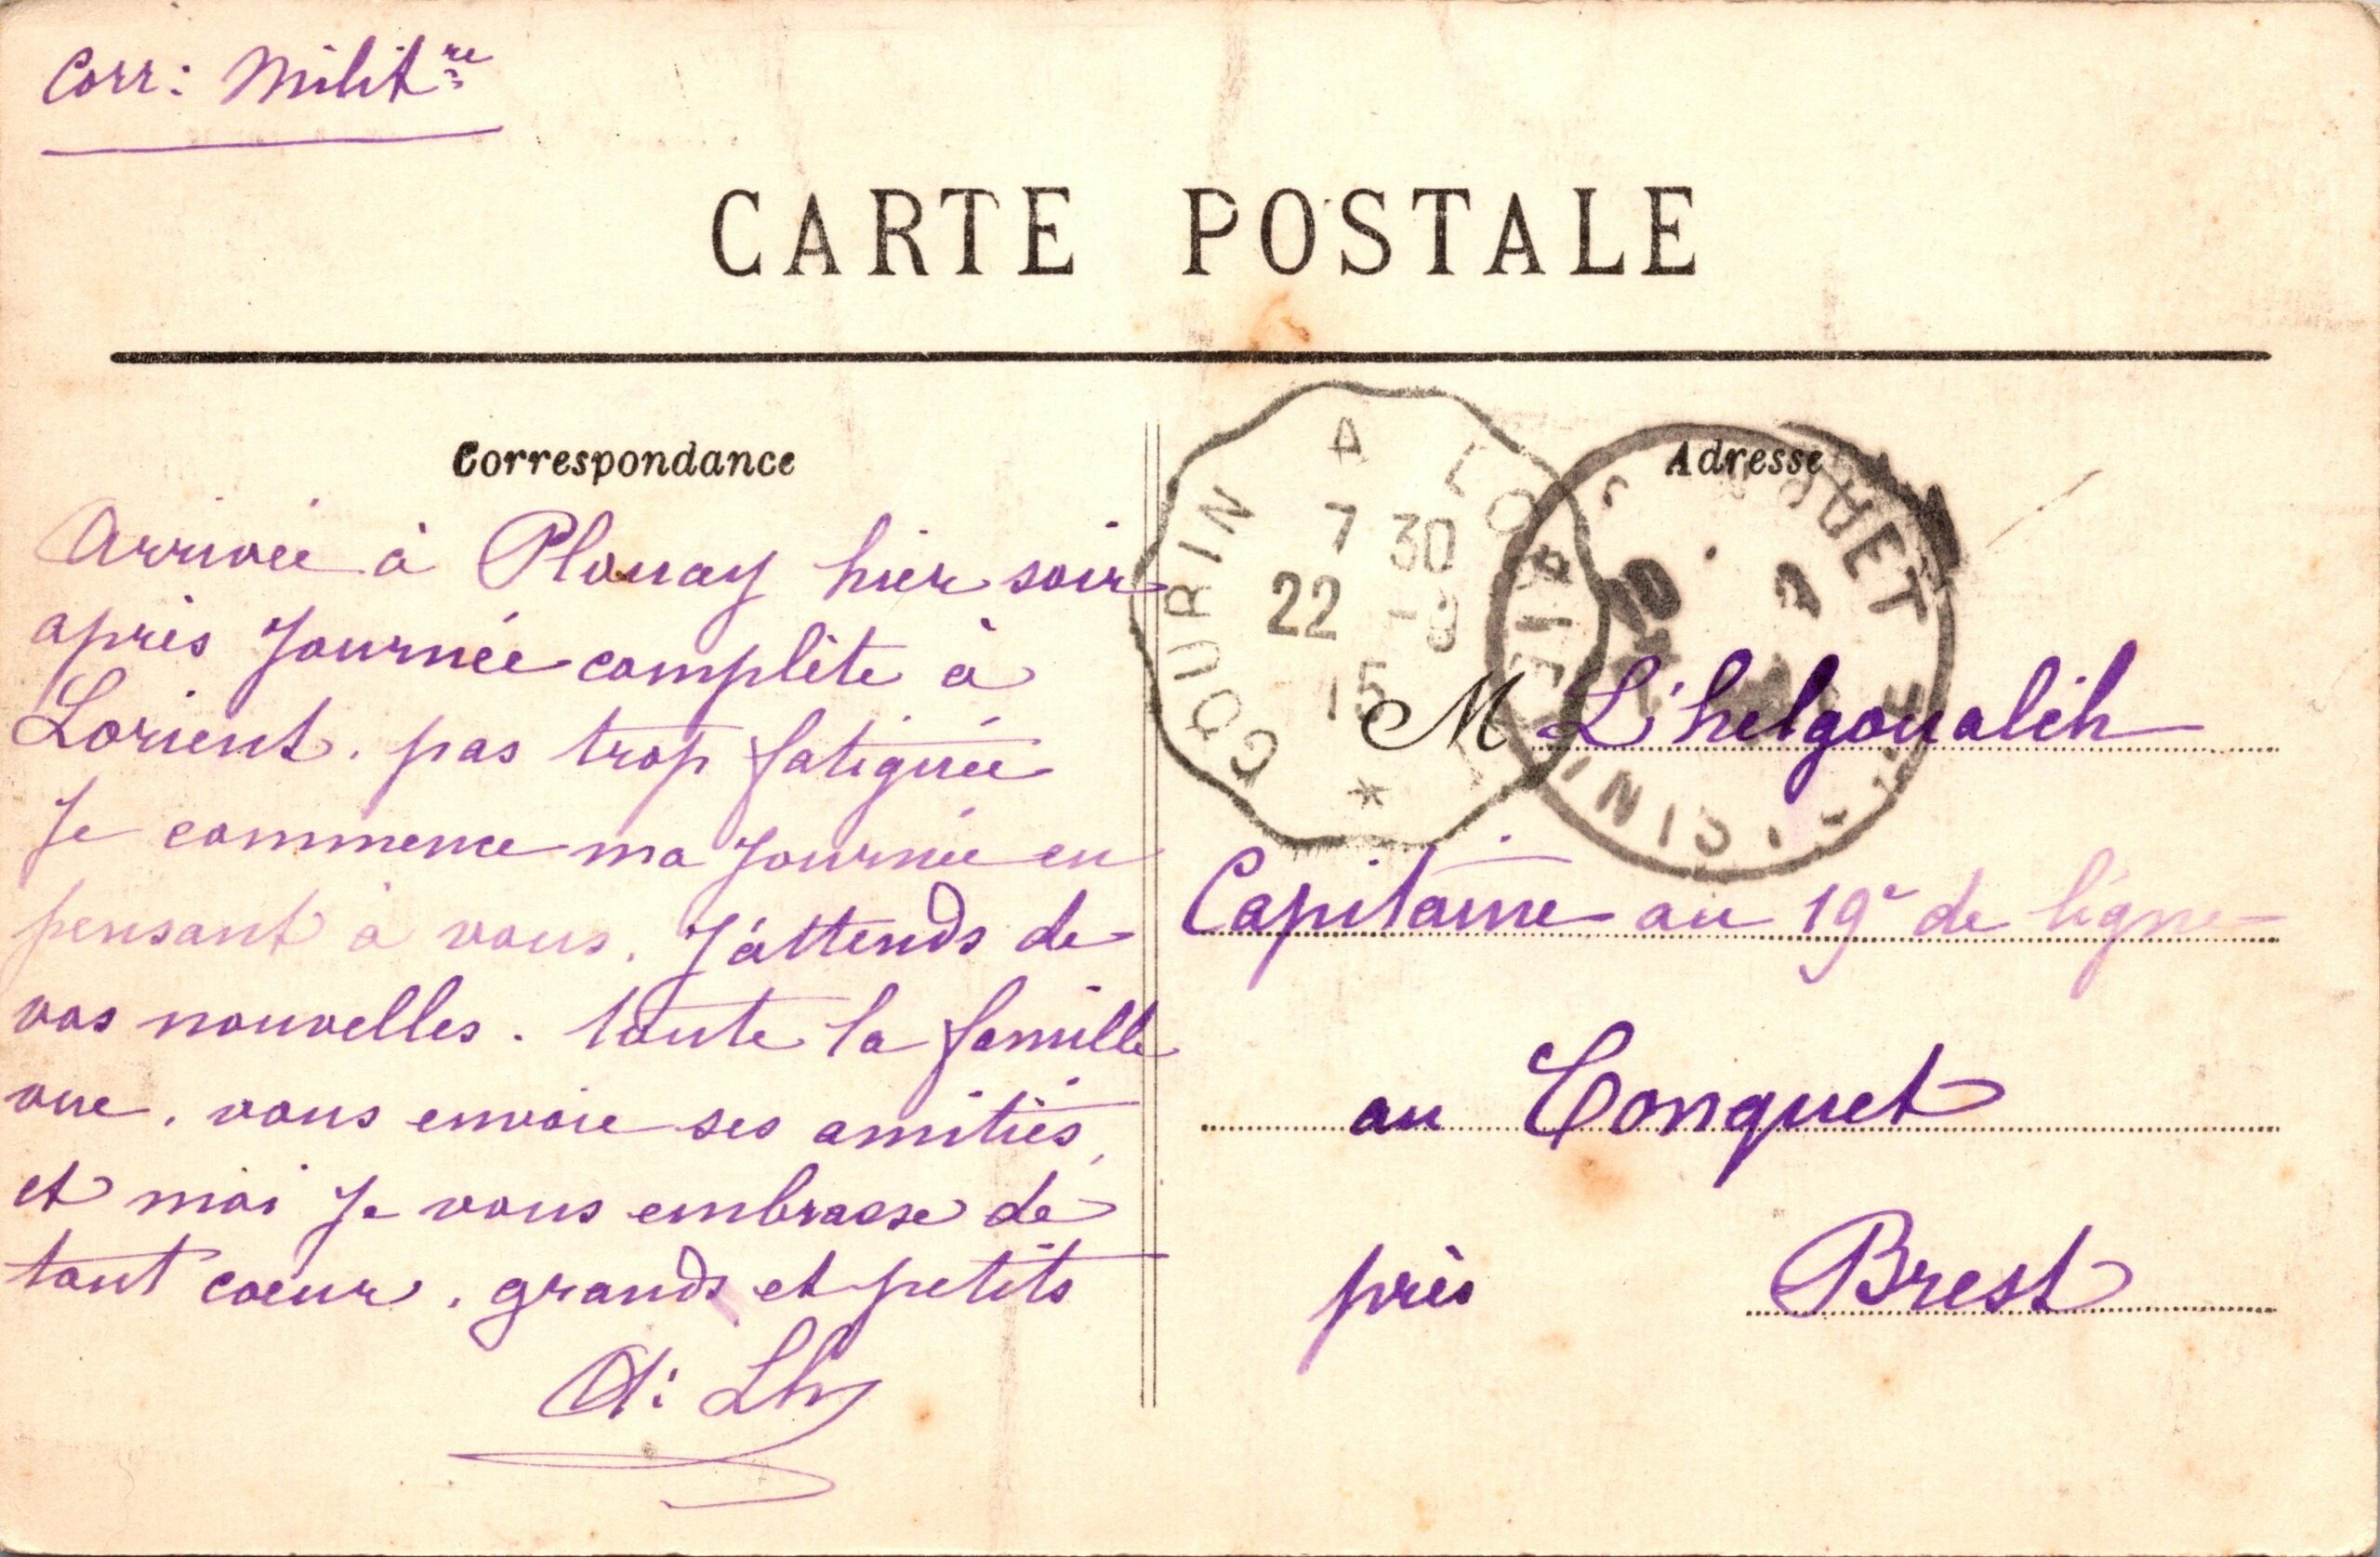 Corr: Milit^re
CARTE POSTALE
Correspondance
Arrivée à Plouay hier soir
après journée complète à
Lorient. pas trop fatiguée
Je commence ma journée en
pensant à vous. J'attends de
vos nouvelles. toute la famille
vue, vous envoie ses amitiés,
et moi je vous embrasse de
tout coeur, grands et petits
A: Lh
Adresse
GOURIN A LORIENT
7 30
22 -8
15
*
M L'helgoualch
Capitaine au 19e de ligne
au Conquet
près Brest